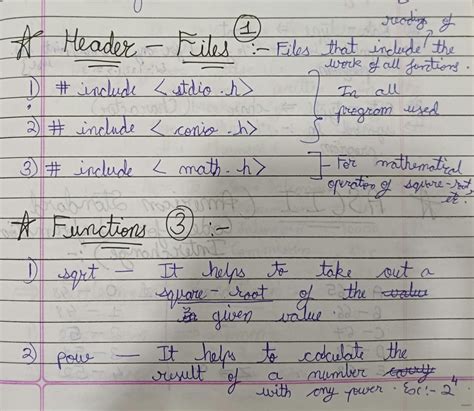 reading of
☆ Header - Files ① :- Files that include the
work of all functions.
1) # include < stdio .h>
In all
program used
2) # include < conio .h>
3) # include < math .h>
For mathematical
operation of square-root,
etc.
☆ Functions ③ :-
1) sqrt — It helps to take out a
square-root of the value
given value.
2) pow — It helps to calculate the
result of a number
with any power. Ex:- 2⁴